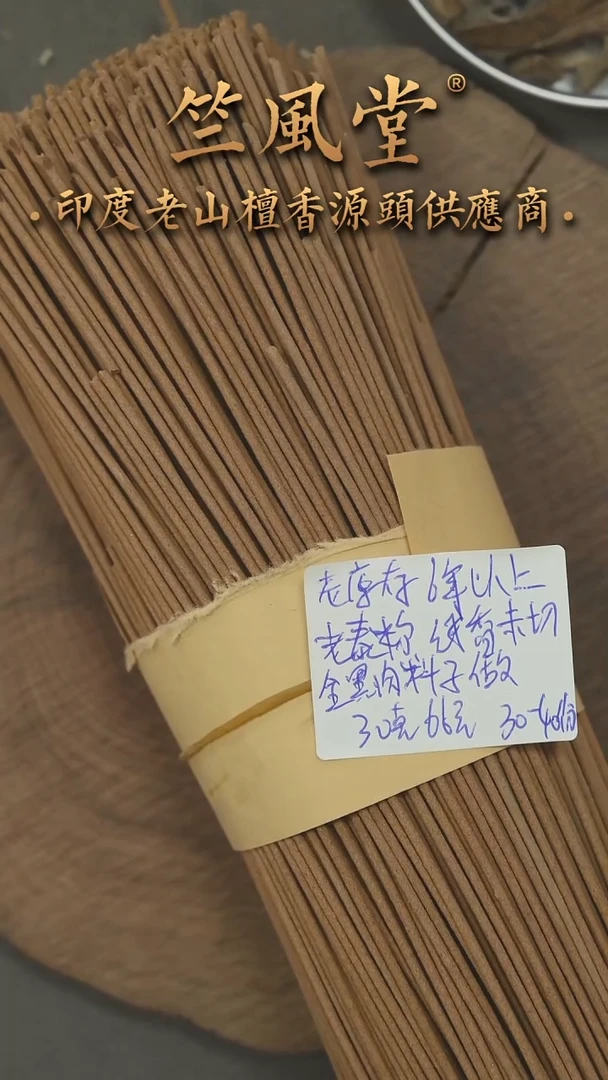 竺風堂®
·印度老山檀香源頭供應商·
老库存6年以上
老泰粉 线香未切
全黑肉料子做
30克66元 30-40份